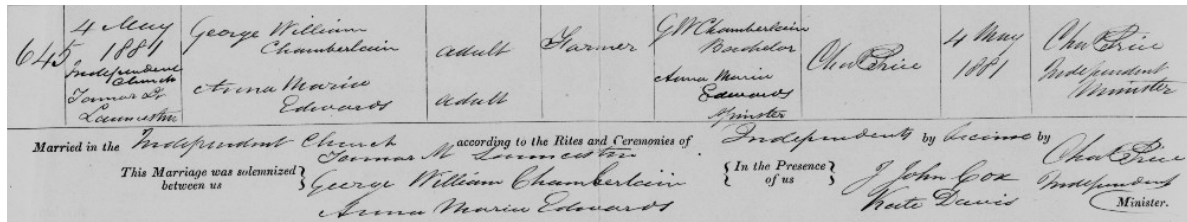 645
4 May
1881
Independent
Church
Tamar St
Launceston
George William
Chamberlain
Anna Maria
Edwards
adult
adult
Farmer
GW Chamberlain
Bachelor
Anna Maria
Edwards
Spinster
Chas Price
4 May
1881
Chas Price
Independent
Minister
Married in the Independent Church according to the Rites and Ceremonies of Independents by License by
Tamar St Launceston
This Marriage was solemnized between us
George William Chamberlain
Anna Maria Edwards
(In the Presence of us
J John Cox
Kate Davis
Chas Price
Independent
Minister.